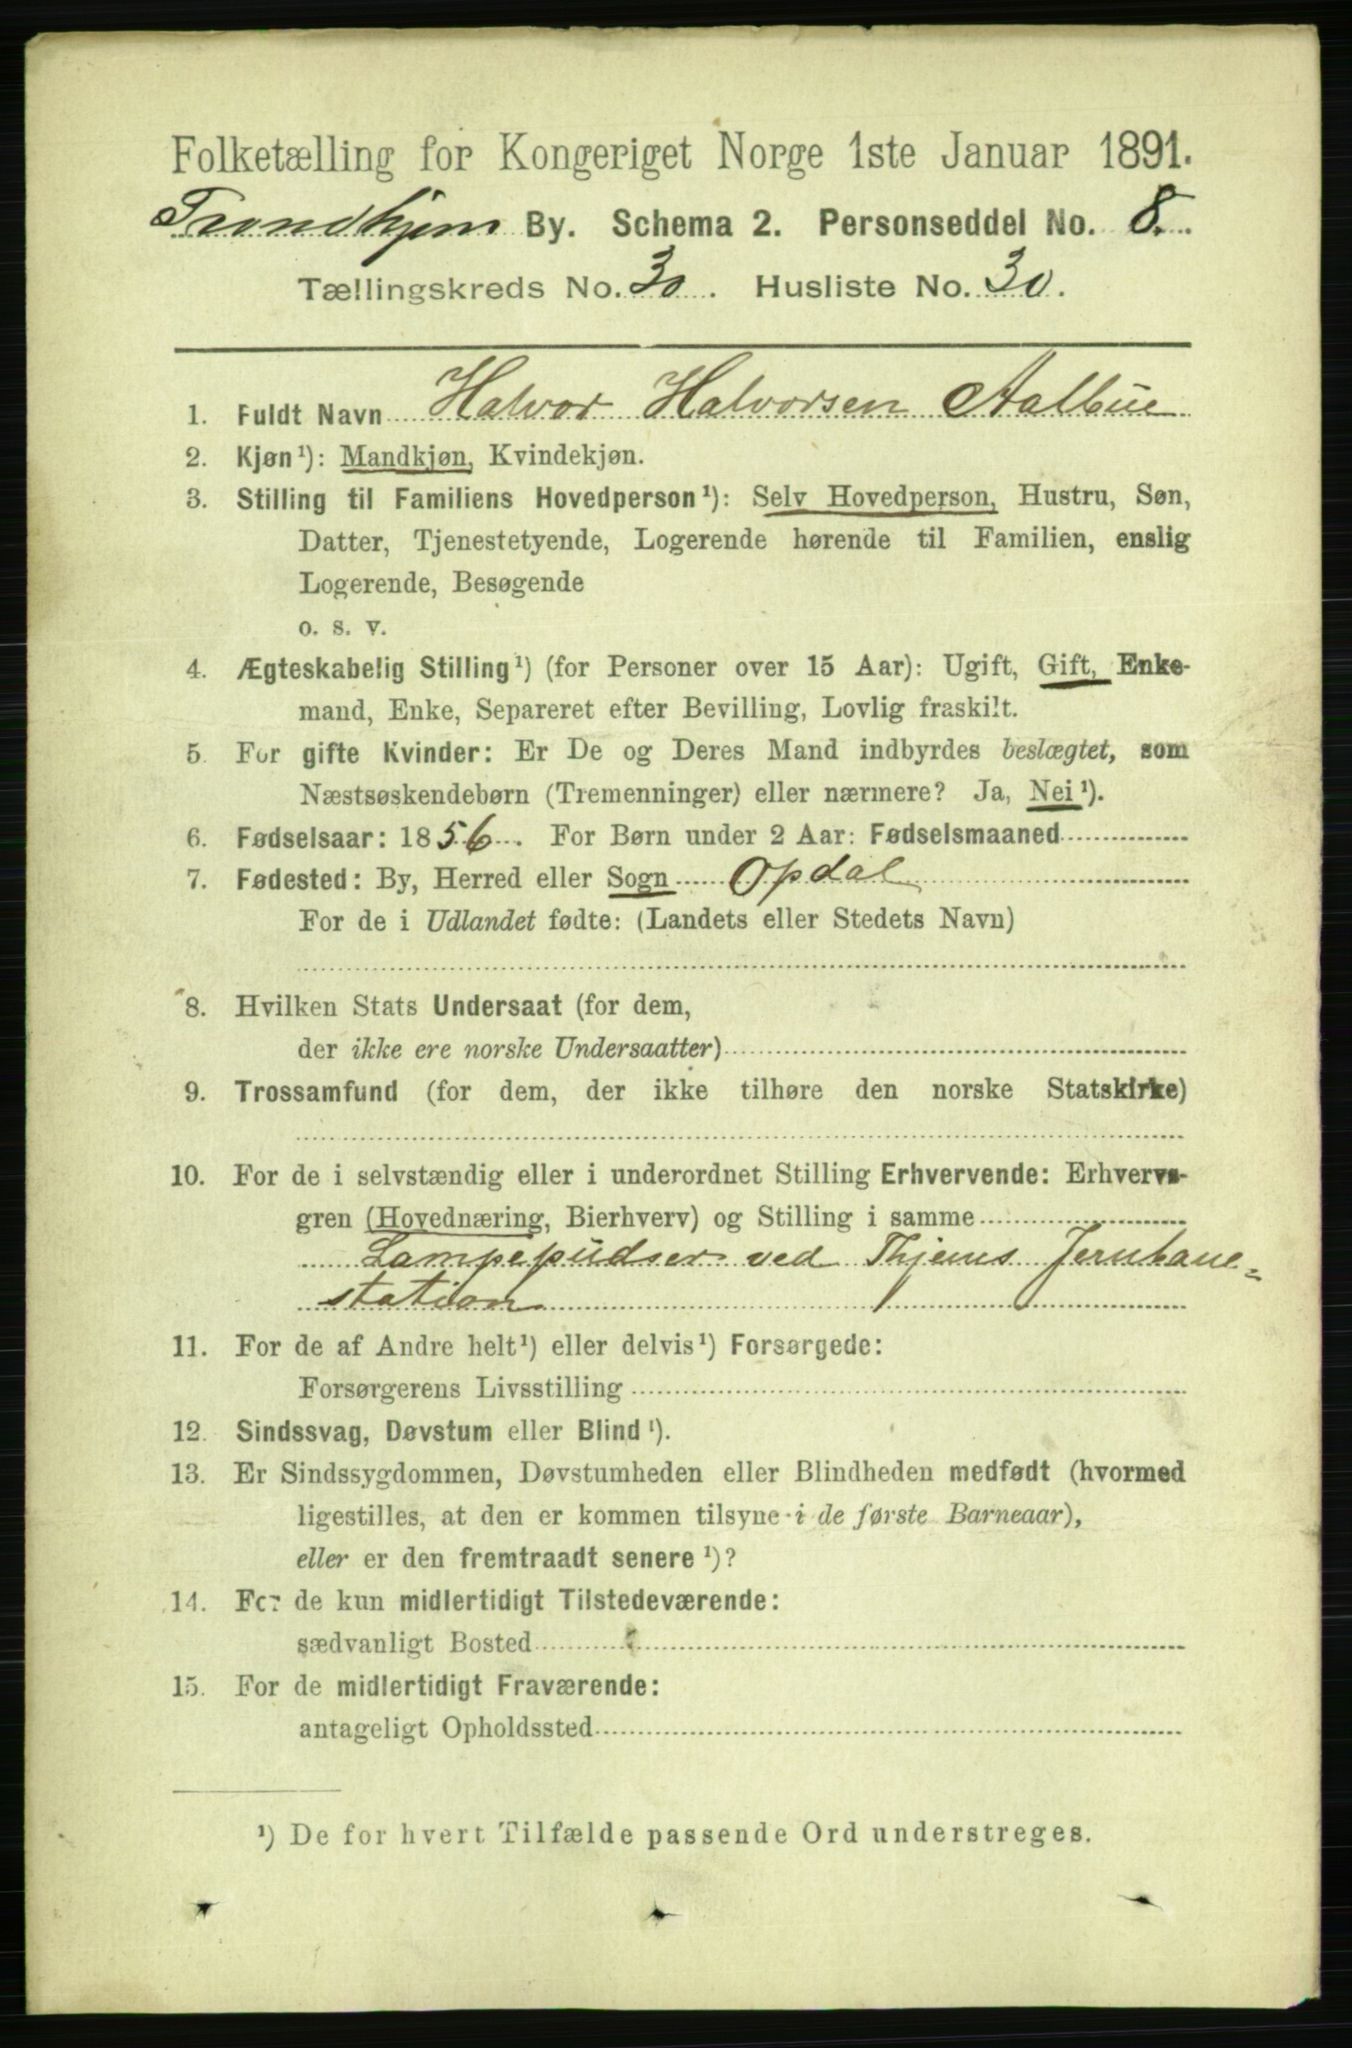 Folketælling for Kongeriget Norge 1ste Januar 1891.
Trondhjem By. Schema 2. Personseddel No. 8.
Tællingskreds No. 30. Husliste No. 30.
1. Fuldt Navn Halvor Halvorsen Aalbue
2. Kjøn¹): Mandkjøn, Kvindekjøn.
3. Stilling til Familiens Hovedperson¹): Selv Hovedperson, Hustru, Søn,
Datter, Tjenestetyende, Logerende hørende til Familien, enslig
Logerende, Besøgende
o. s. v.
4. Ægteskabelig Stilling¹) (for Personer over 15 Aar): Ugift, Gift, Enke-
mand, Enke, Separeret efter Bevilling, Lovlig fraskilt.
5. For gifte Kvinder: Er De og Deres Mand indbyrdes beslægtet, som
Næstsøskendebørn (Tremenninger) eller nærmere? Ja, Nei¹).
6. Fødselsaar: 1856. For Børn under 2 Aar: Fødselsmaaned
7. Fødested: By, Herred eller Sogn Opdal
For de i Udlandet fødte: (Landets eller Stedets Navn)
8. Hvilken Stats Undersaat (for dem,
der ikke ere norske Undersaatter)
9. Trossamfund (for dem, der ikke tilhøre den norske Statskirke)
10. For de i selvstændig eller i underordnet Stilling Erhvervende: Erhvervs-
gren (Hovednæring, Bierhverv) og Stilling i samme
Lampepudser ved Thjems Jernbane=
station
11. For de af Andre helt¹) eller delvis¹) Forsørgede:
Forsørgerens Livsstilling
12. Sindssvag, Døvstum eller Blind¹).
13. Er Sindssygdommen, Døvstumheden eller Blindheden medfødt (hvormed
ligestilles, at den er kommen tilsyne i de første Barneaar),
eller er den fremtraadt senere¹)?
14. For de kun midlertidigt Tilstedeværende:
sædvanligt Bosted
15. For de midlertidigt Fraværende:
antageligt Opholdssted
¹) De for hvert Tilfælde passende Ord understreges.